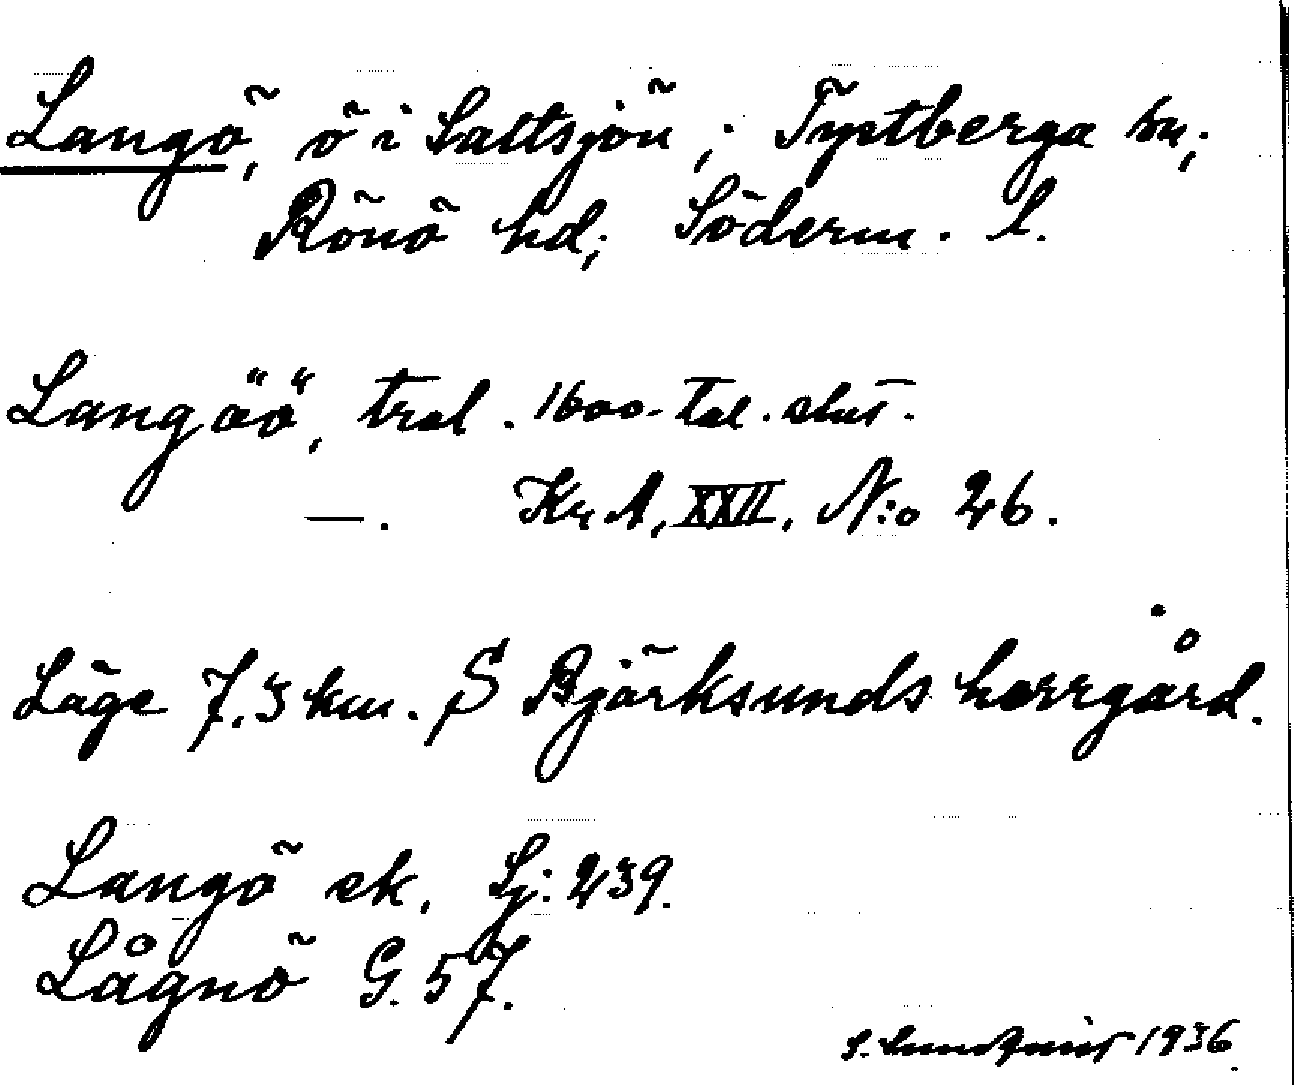 Langö, ö i Saltsjön; Tystberga sn;
Rönö hd; Söderm. l.
Langöö, trol. 1600-tal. slut.
—. KrA, XXII, N:o 26.
Läge 7.3 km. S Björksunds herrgård.
Langö ek. Sj: 239.
Lågnö G. 57.
S. Lundqvist 1936